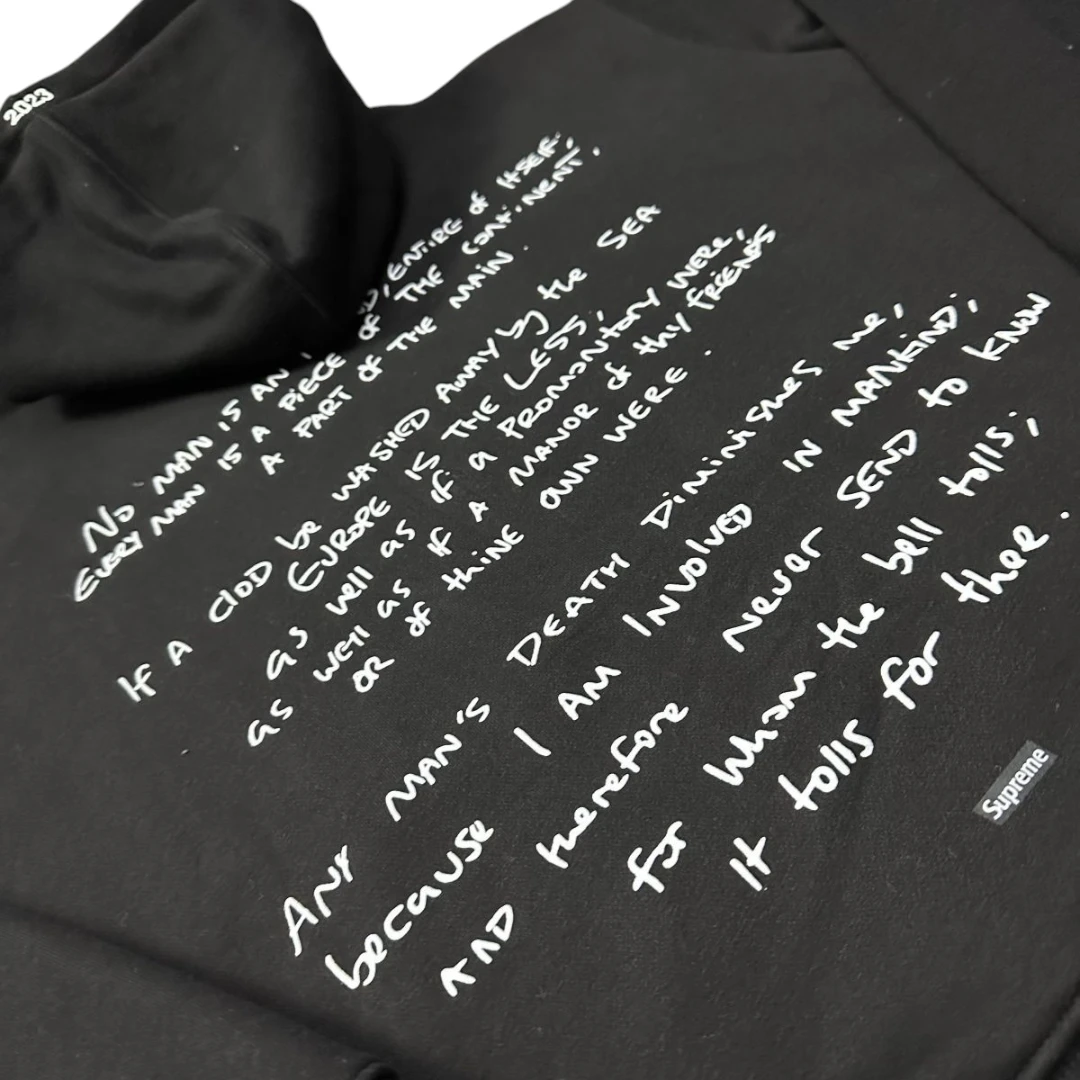 2023
No MAN IS AN D, ENTIRE of ITSELF;
EVERY MAN IS A PIECE OF THE CONTINENT,
A PART OF THE MAIN.
If A CLOD be WASHED AWAY by the SEA
EUROPE IS THE LESS,
as well as if a PROMONTORY WERE,
as well as if A MANOR of thy FRIENDS
OR of thINE OWN WERE.
ANY MAN'S DEATH DIMINISHES me,
because I AM INVOLVED IN MANKIND;
AND therefore Never SEND to KNOW
for Whom the bell tolls;
It tolls for thee.
Supreme